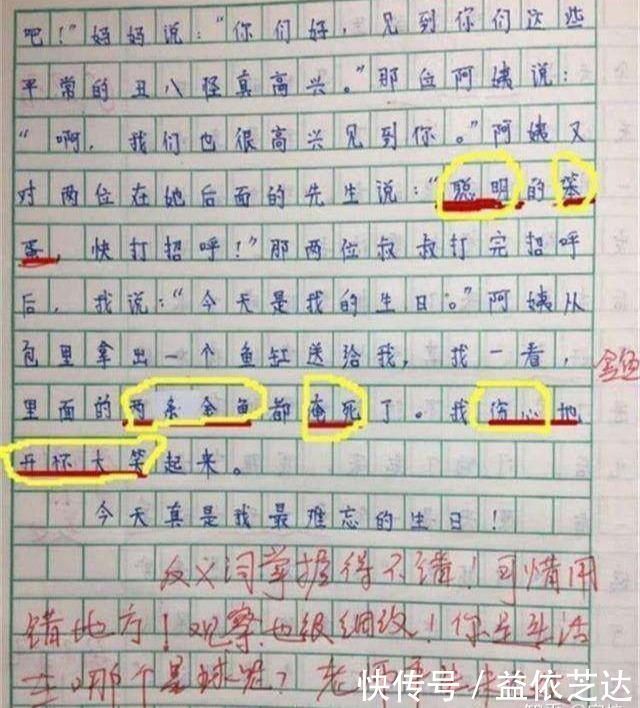 吧！”妈妈说：“你们好，见到你们这些
平常的丑八怪真高兴。”那位阿姨说：
“啊，我们也很高兴见到你。”阿姨又
对两位在她后面的先生说：“聪明的笨
蛋，快打招呼！”那两位叔叔打完招呼
后，我说：“今天是我的生日。”阿姨从
包里拿出一个鱼缸送给我，我一看，
金鱼
里面的两条金鱼都淹死了。我伤心地
开怀大笑起来。
今天真是我最难忘的生日！
反义词掌握得不错！可惜用
错地方！观察也很细致！你是生活
在哪个星球的？老师
快传号／益依芝达